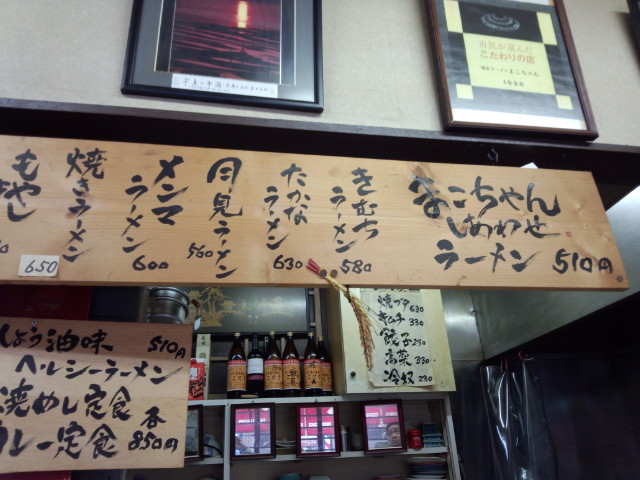 市民が選んだ
こだわりの店
1998
まこちゃん
しあわせ
ラーメン 510円
きむち
ラーメン
580
たかな
ラーメン
630
月見ラーメン
560
メンマ
ラーメン
600
焼きラーメン
650
もやし
焼ブタ 630
キムチ 330
餃子 230
高菜 330
冷奴 230
しょう油味 510円
ヘルシーラーメン
焼めし定食 各
カレー定食 850円